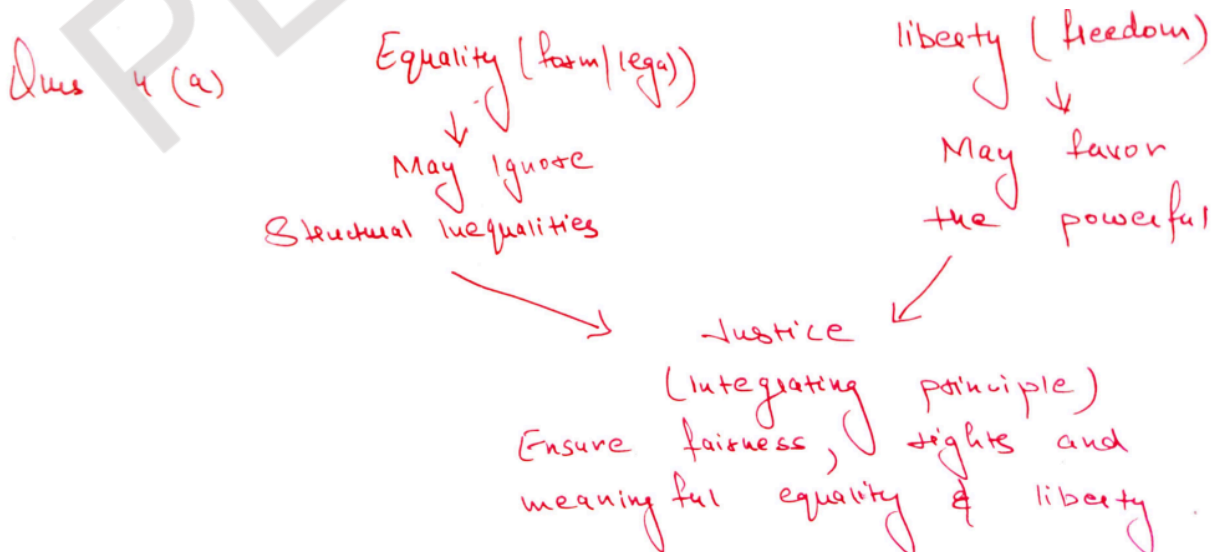 Ques 4 (a)
Equality (form/legal)
liberty (freedom)
↓
↓
May ignore
Structural Inequalities
May favor
the powerful
Justice
(integrating principle)
Ensure fairness, rights and
meaningful equality & liberty.